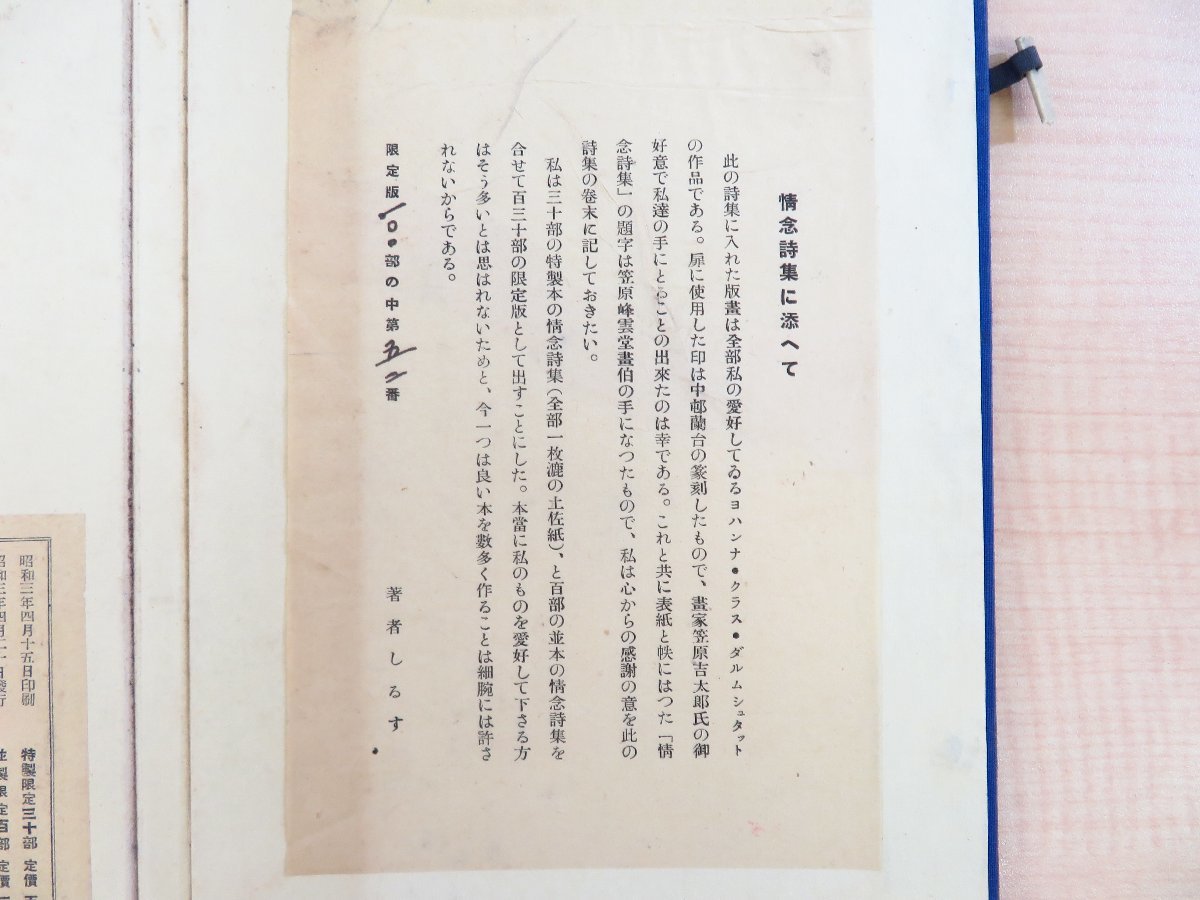 情念詩集に添へて
此の詩集に入れた版畫は全部私の愛好してゐるヨハンナ・クラス・ダルムシュタット
の作品である。扉に使用した印は中邨蘭台の篆刻したもので、畫家笠原吉太郎氏の御
好意で私達の手にとることの出來たのは幸である。これと共に表紙と帙にはつた「情
念詩集」の題字は笠原峰雲堂畫伯の手になつたもので、私は心からの感謝の意を此の
詩集の卷末に記しておきたい。
私は三十部の特製本の情念詩集(全部一枚漉の土佐紙)、と百部の並本の情念詩集を
合せて百三十部の限定版として出すことにした。本當に私のものを愛好して下さる方
はそう多いとは思はれないためと、今一つは良い本を數多く作ることは細腕には許さ
れないからである。
著者しるす
限定版一〇〇部の中第五二番
昭和三年四月十五日印刷
昭和三年四月二十日發行
特製限定三十部 定價
並製限定百部 定價